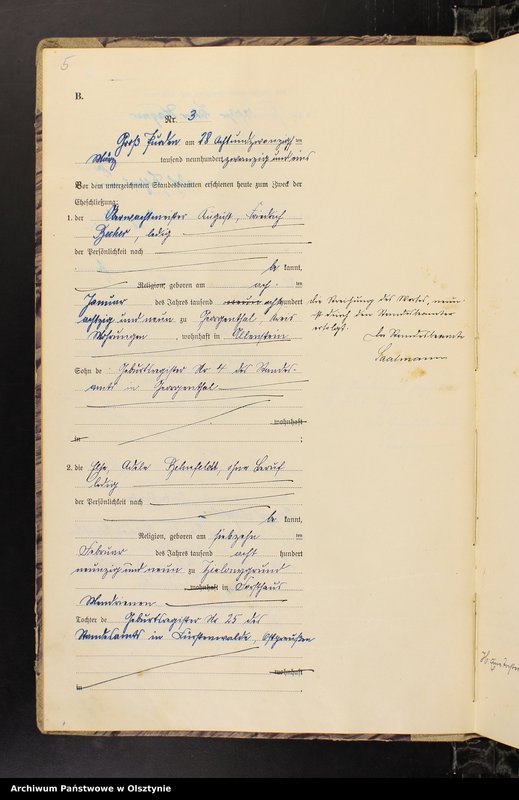 5
B.
Nr. 3
Groß Purden am 28 Achtundzwanzig ten
März tausend neunhundert zwanzig und eins
Vor dem unterzeichneten Standesbeamten erschienen heute zum Zweck der
Eheschließung:
1. der Oberwachtmeister August, Friedrich
Becker, ledig
der Persönlichkeit nach
be kannt,
Religion, geboren am ach ten
Januar des Jahres tausend neun acht hundert
achtzig und neun zu Georgenthal, Kreis
Mohrungen, wohnhaft in Allenstein
Sohn de Geburtsregister Nr. 4 des Standes-
amts in Georgenthal
wohnhaft
in ;
die Streichung des Wortes „neun“
ist durch den Standesbeamten
erfolgt.
Der Standesbeamte
Saalmann
2. die Else, Adele, ohne Beruf
ledig
der Persönlichkeit nach
be kannt,
Religion, geboren am siebzehn ten
Februar des Jahres tausend acht hundert
neunzig und neun zu
wohnhaft in Forsthaus
Tochter de Geburtsregister Nr. 25 des
Standesamts in Fürstenwalde, Ostpreußen
wohnhaft
in .
Archiwum Państwowe w Olsztynie